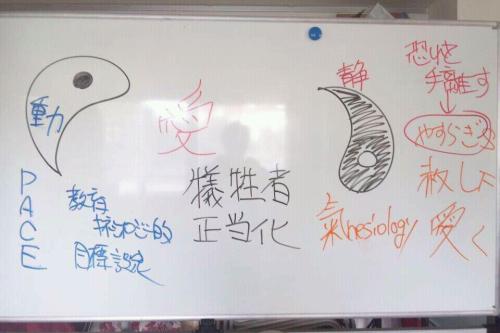 動
P
A
C
E
教育
目標設定
愛
犠牲者
正当化
静
氣nesiology
恐れを
手離す
↓
やすらぎ
赦し
愛